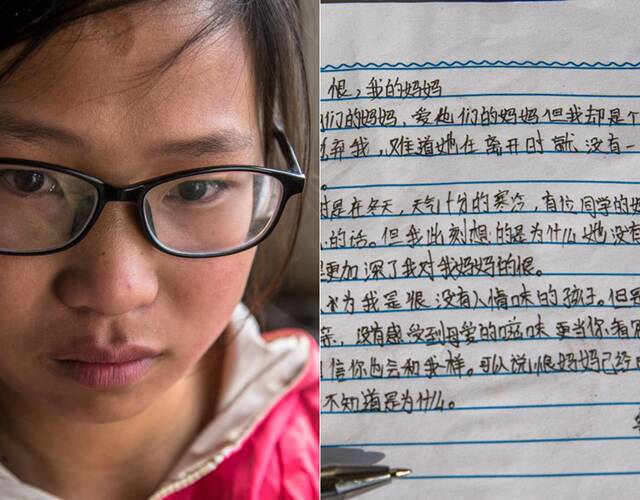 恨，我的妈妈
们的妈妈，爱他们的妈妈但我却是个
弃我，难道她在离开时就没有一
时是在冬天，天气十分的寒冷，有位同学的妈
的话。但我此刻想的是为什么她没有
更加深了我对我妈妈的恨。
为我是很没有人情味的孩子。但是
等，没有感受到母爱的滋味更当你看
信你也会和我一样。可以说恨妈妈已经
不知道是为什么。